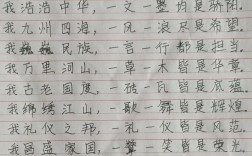 我浩浩中华，一文一墨皆为骄阳。
我九州四海，一风一浪尽是希望。
我巍巍民族，一言一行都是担当。
我万里河山，一草一木皆是华章。
我古老国度，一砖一瓦皆是底蕴。
我绵绣江山，一歌一舞皆是辉煌。
我礼仪之邦，一礼一仪皆是风范。
我昌盛家国，一荤一笑皆是荣光。